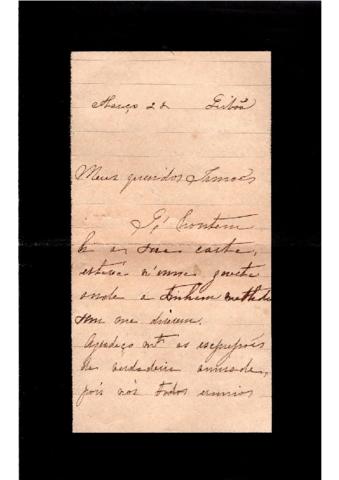 Março 28 Lisboa
Meus queridos Irmãos
Só hontem
li a sua carta,
estava n'uma gaveta
onde a tinham mettido
sem me dizerem.
Agradeço mto as expressões
de verdadeira amizade,
pois nós todos eramos